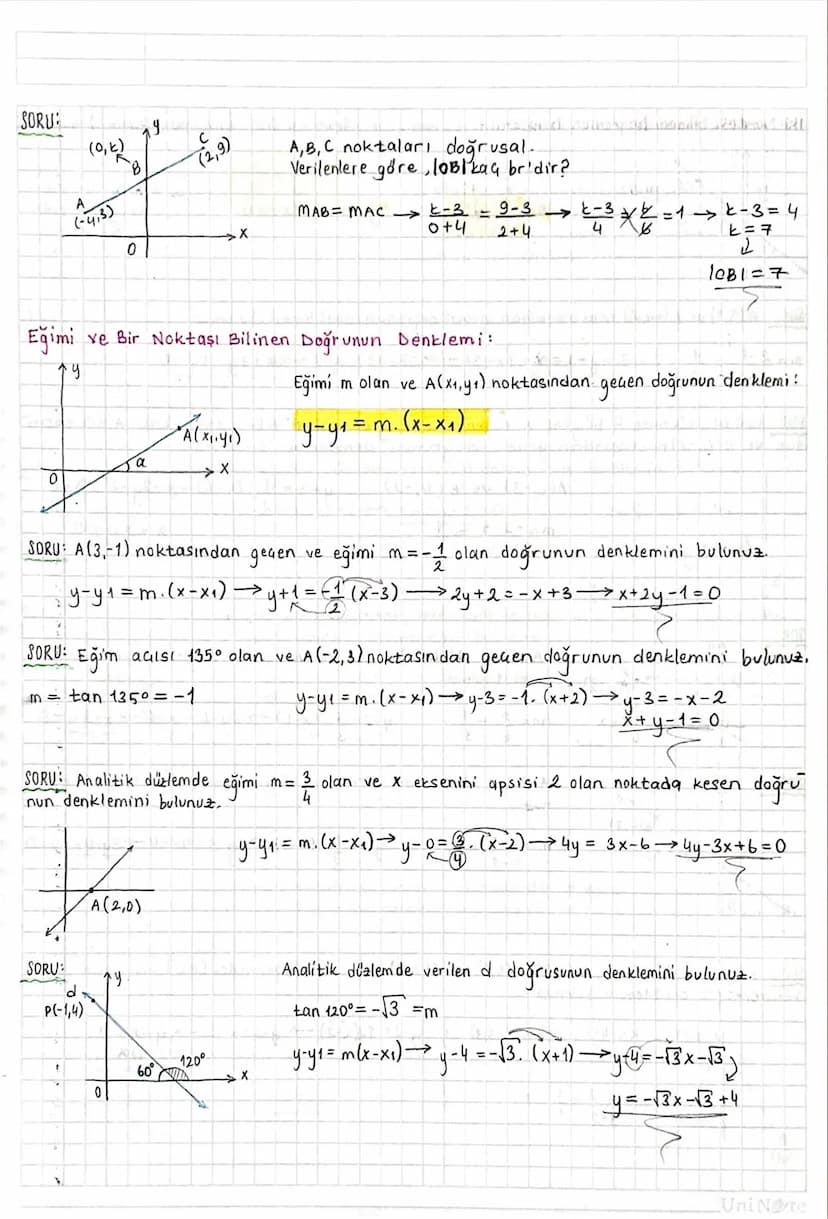 SORU:
y
(0,k)
B
C
(2,9)
A
(-4,3)
x
0
A,B,C noktaları doğrusal.
Verilenlere göre, |OB| kaç br'dir?
MAB = MAC → k-3/0+4 = 9-3/2+4 → k-3/4 = 6/6 = 1 → k-3=4
k=7
↓
|OB|=7
Eğimi ve Bir Noktası Bilinen Doğrunun Denklemi:
y
A(x1,y1)
α
x
0
Eğimi m olan ve A(x1,y1) noktasından geçen doğrunun denklemi:
y-y1 = m.(x-x1)
SORU: A(3,-1) noktasından geçen ve eğimi m=-1/2 olan doğrunun denklemini bulunuz.
y-y1 = m.(x-x1) → y+1 = -1/2 (x-3) → 2y+2 = -x+3 → x+2y-1=0
SORU: Eğim açısı 135° olan ve A(-2,3) noktasından geçen doğrunun denklemini bulunuz.
m = tan 135° = -1
y-y1 = m.(x-x1) → y-3 = -1.(x+2) → y-3 = -x-2
x+y-1=0
SORU: Analitik düzlemde eğimi m= 3/4 olan ve x eksenini apsisi 2 olan noktada kesen doğru
nun denklemini bulunuz.
y-y1 = m.(x-x1) → y-0 = 3/4.(x-2) → 4y = 3x-6 → 4y-3x+6=0
A(2,0)
SORU:
y
d
P(-1,4)
60° 120°
x
0
Analitik düzlemde verilen d doğrusunun denklemini bulunuz.
tan 120° = -√3 = m
y-y1 = m(x-x1) → y-4 = -√3.(x+1) → y-4 = -√3x-√3
y = -√3x-√3+4
UniNote